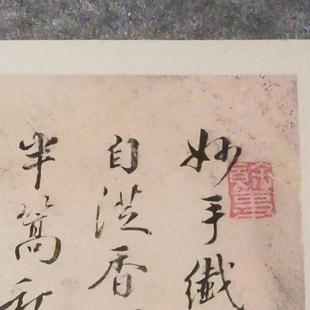 妙手纖
自從香
半篙